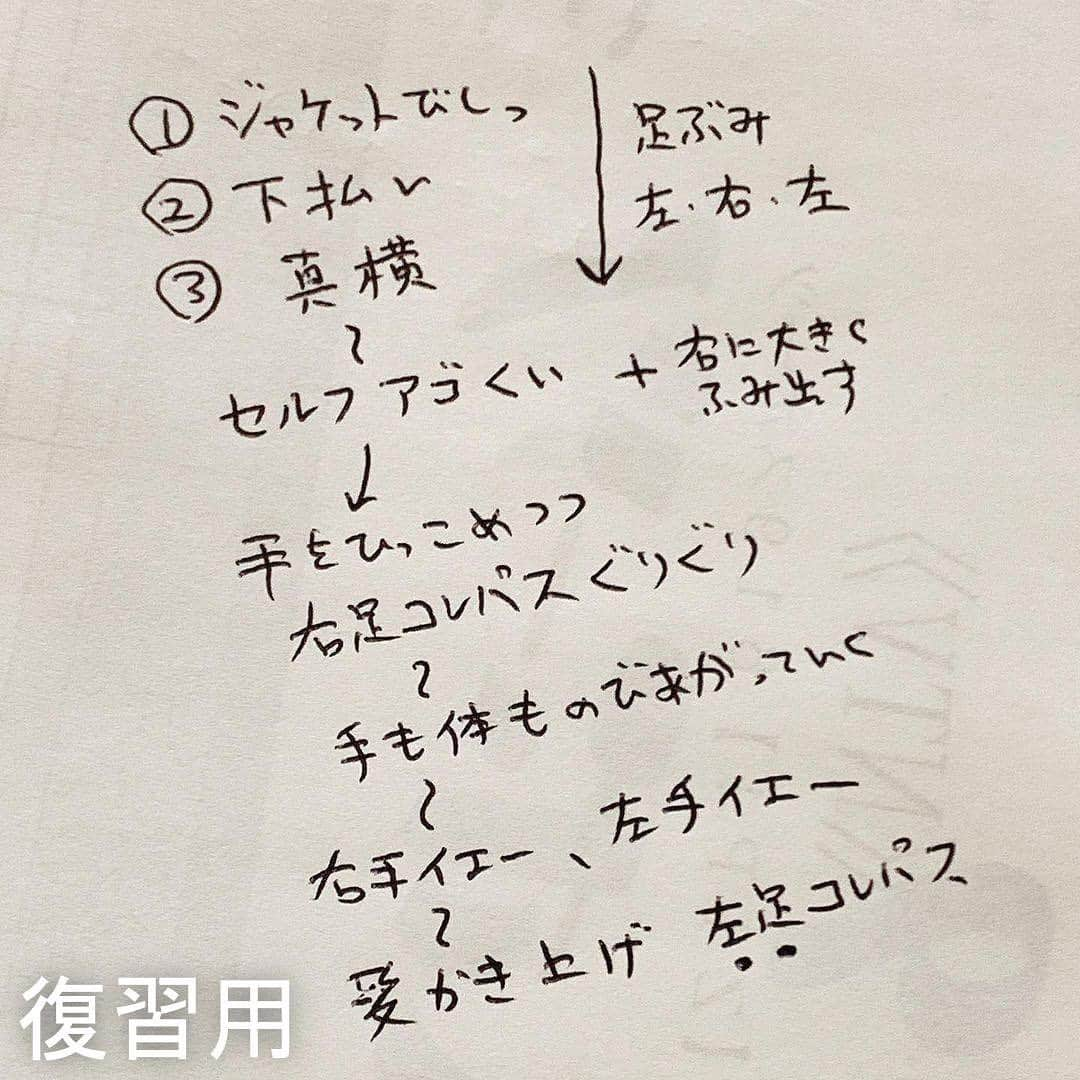 ① ジャケットびしっ
② 下払い
③ 真横
足ぶみ
左・右・左
〜
セルフアゴくい + 右に大きく
ふみ出す
↓
手をひっこめつつ
右足コンパスぐりぐり
〜
手も体ものびあがっていく
〜
右手イエー、左手イエー
〜
愛かき上げ 左足コンパス
復習用